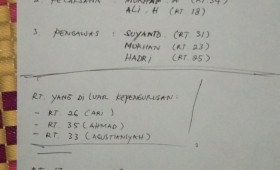 2. PELAKSANA : NORMAN . H (RT. 34)
ALI . H (RT. 18)
3. PENGAWAS : SUYANTO. (RT. 31)
NORHAN (RT 23)
HADRI (RT. 05)
RT. YANG DI LUAR KEPENGURUSAN :
- RT 26 (ARI)
- RT. 35 (AHMAD)
- RT. 33 (AGUSTIANSYAH)